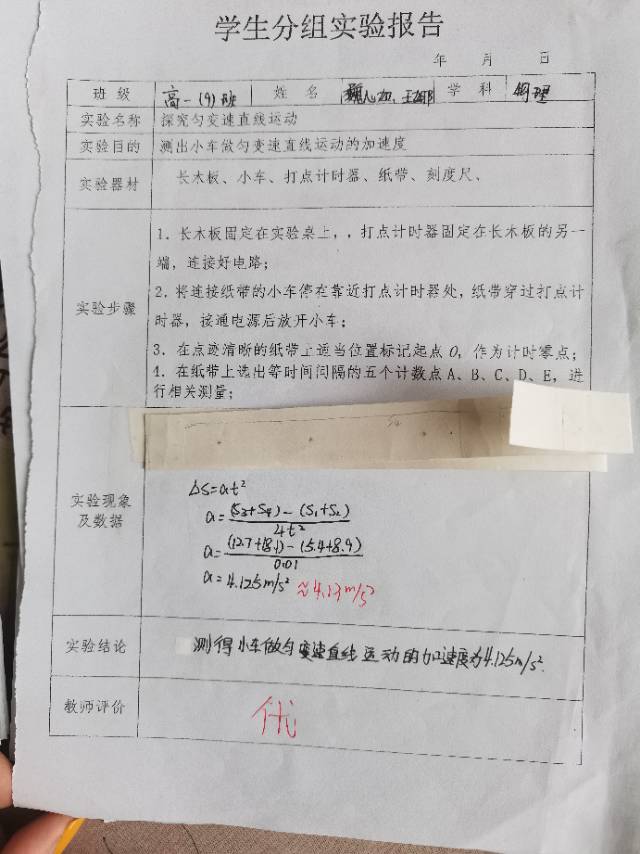 学生分组实验报告
年 月 日
班级 高一(9)班 姓名 学科 物理
实验名称 探究匀变速直线运动
实验目的 测出小车做匀变速直线运动的加速度
实验器材 长木板、小车、打点计时器、纸带、刻度尺、
实验步骤
1. 长木板固定在实验桌上，，打点计时器固定在长木板的另一
端，连接好电路；
2. 将连接纸带的小车停在靠近打点计时器处，纸带穿过打点计
时器，接通电源后放开小车；
3. 在点迹清晰的纸带上适当位置标记起点O，作为计时零点；
4. 在纸带上选出等时间间隔的五个计数点A、B、C、D、E，进
行相关测量；
实验现象
及数据
ΔS=at²
a=(S3+S4)-(S1+S2)/4t²
a=(12.7+18.1)-(5.4+8.9)/0.01
a=4.125m/s² ≈4.13m/s²
实验结论 测得小车做匀变速直线运动的加速度为4.125m/s².
教师评价 优